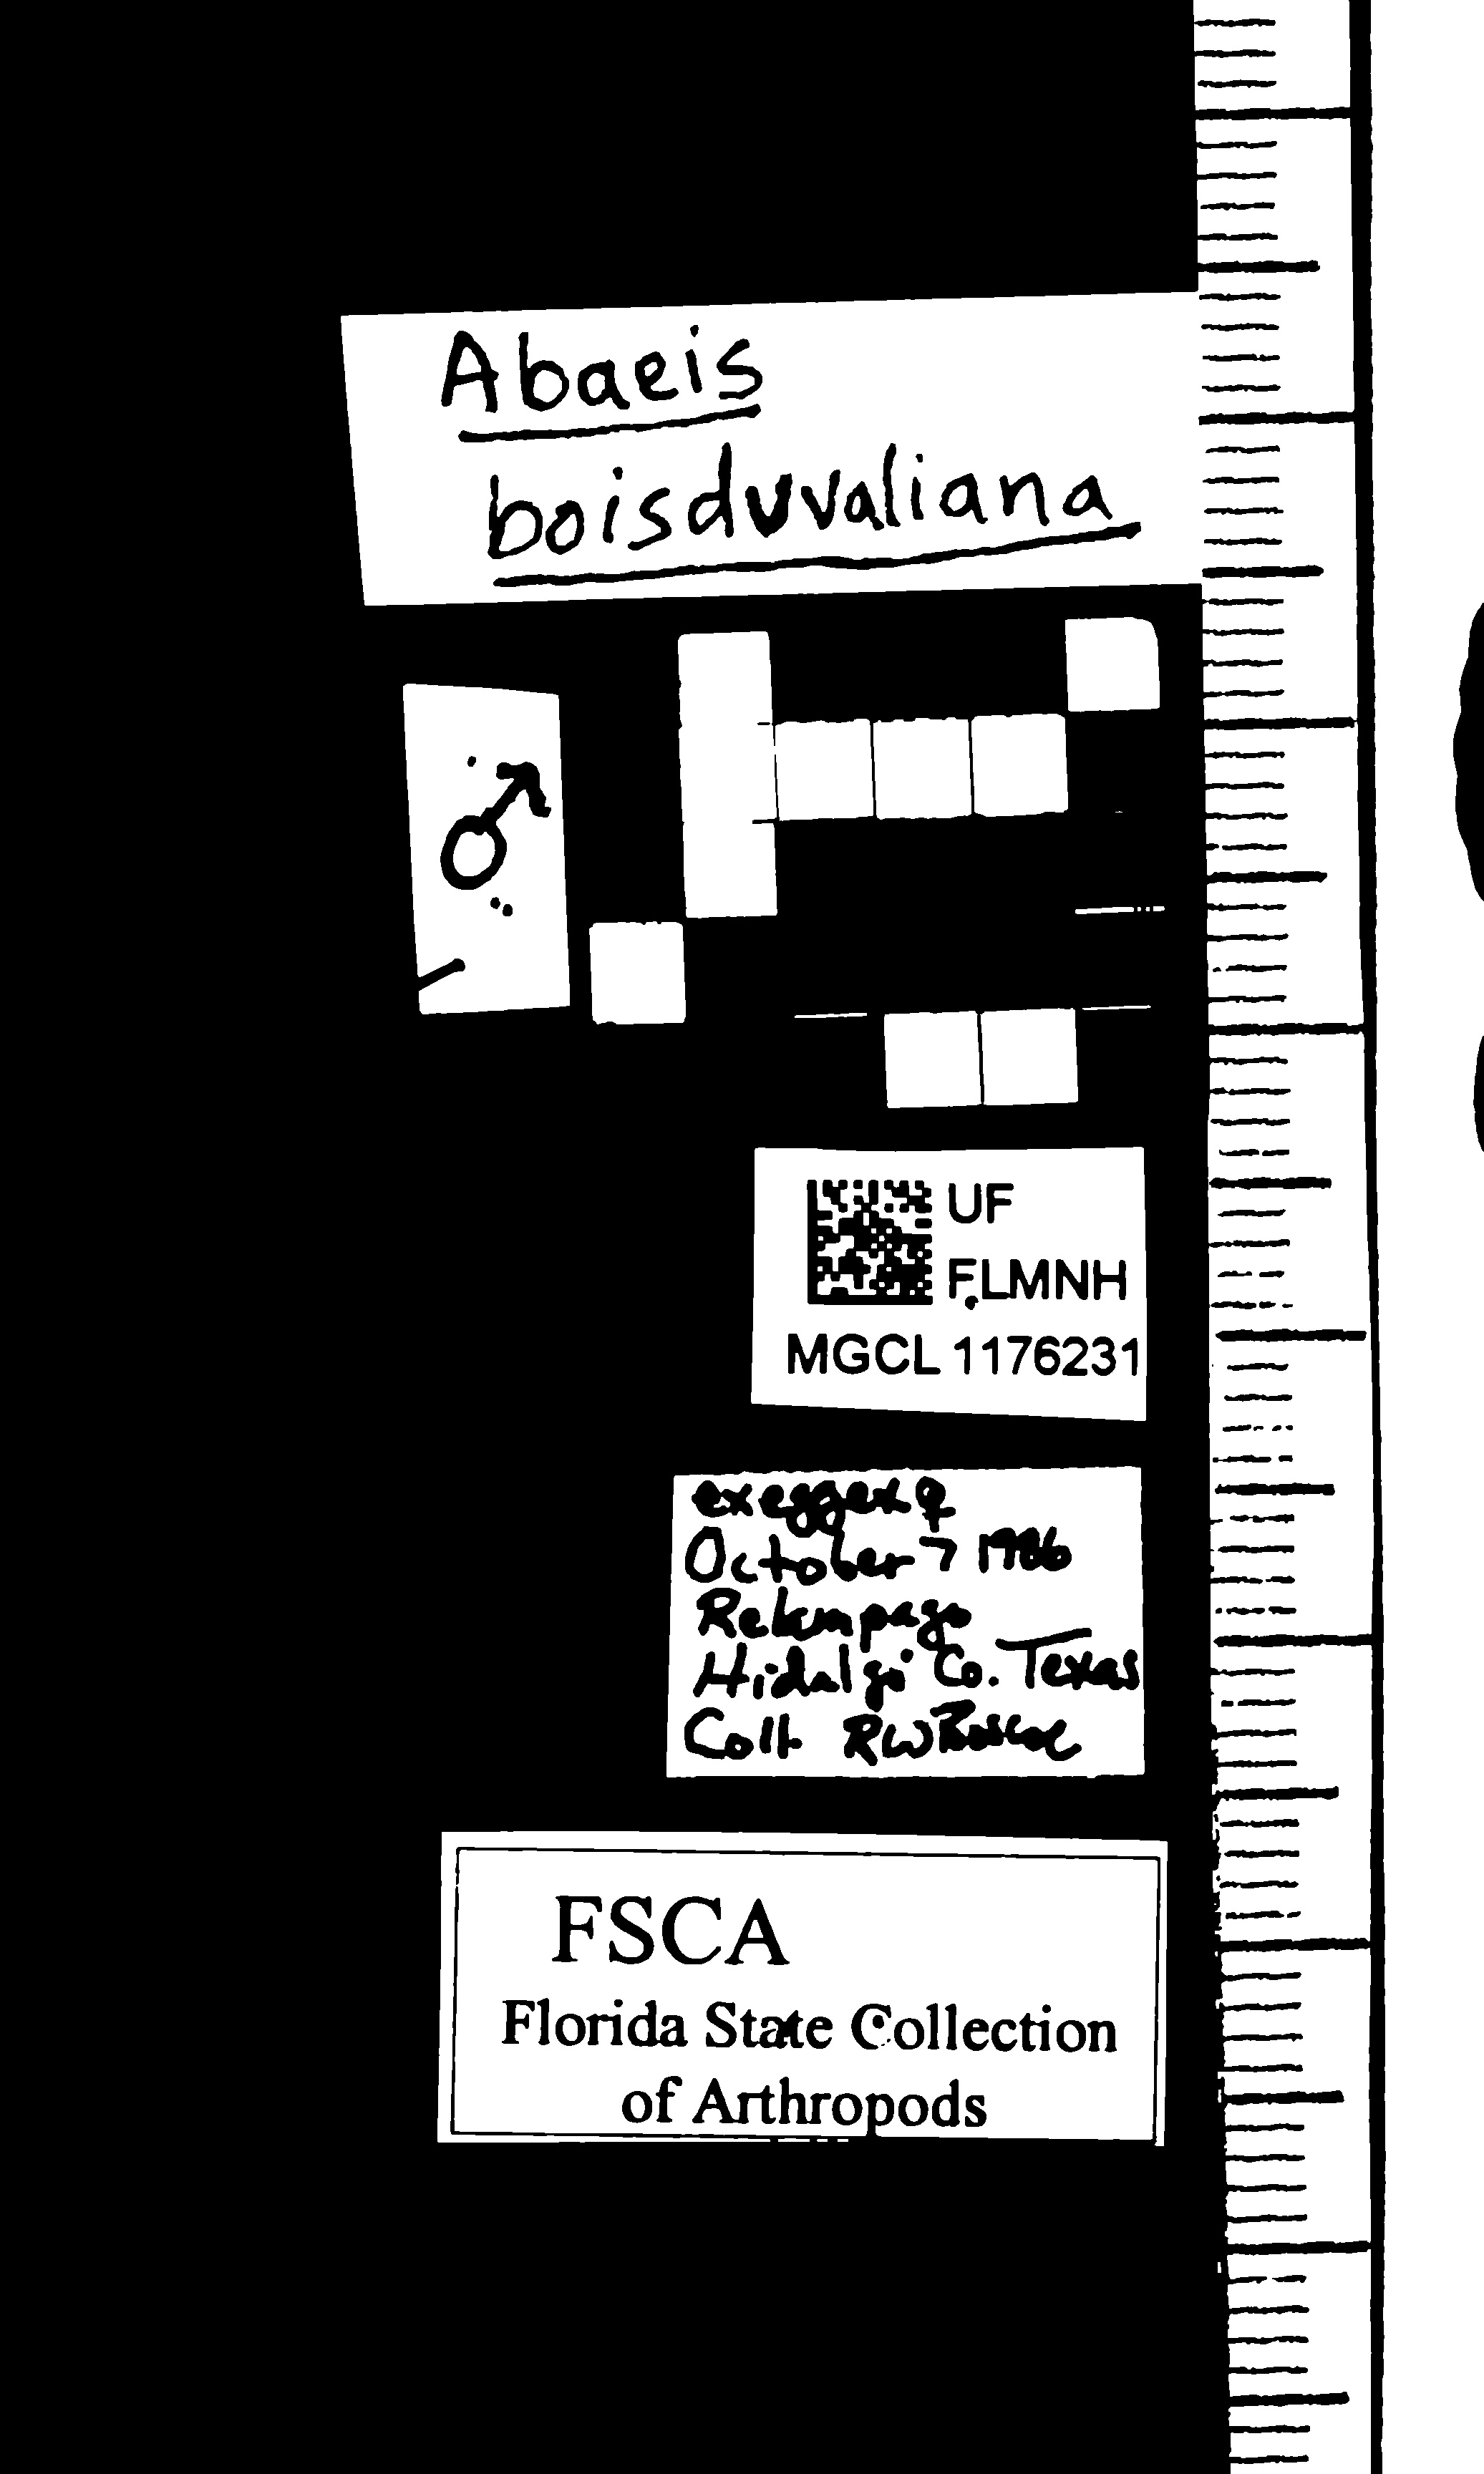 Abaeis
boisduvaliana
♂
UF
FLMNH
MGCL 1176231
ex egg ex ♀
October 7 1986
Relampago
Hidalgo Co. Texas
Coll. RW Boscoe
FSCA
Florida State Collection
of Arthropods